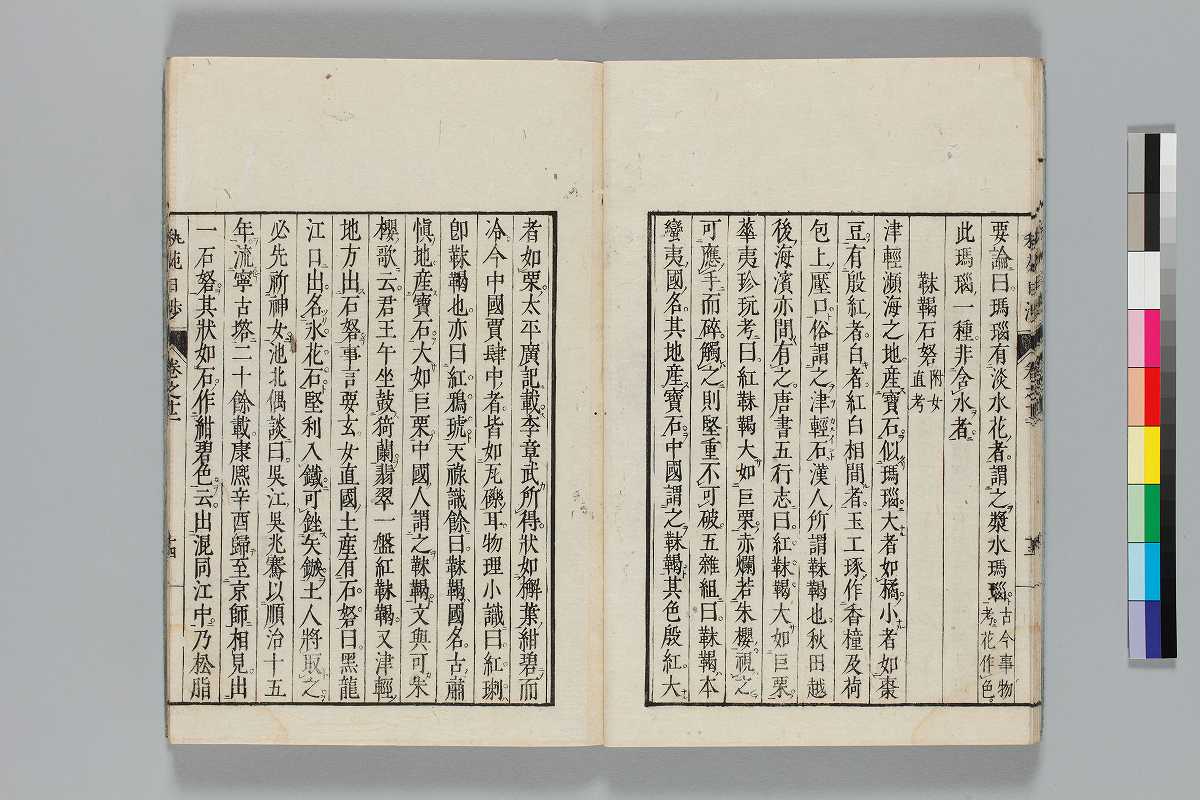 要論曰瑪瑙有淡水花者謂之漿水瑪瑙古今事物考花作色
此瑪瑙一種非含水者
靺鞨石砮附女直考
津輕瀕海之地産寶石似瑪瑙大者如橘小者如棗
豆有殷紅者白者紅白相間者玉工琢作香橦及荷
包上壓口俗謂之津輕石漢人所謂靺鞨也秋田越
後海濱亦間有之唐書五行志曰紅靺鞨大如巨栗
華夷珍玩考曰紅靺鞨大如巨栗赤爛若朱櫻視之
可應手而碎觸之則堅重不可破五雜組曰靺鞨本
蠻夷國名其地産寶石中國謂之靺鞨其色殷紅大
者如栗太平廣記載李章武所得狀如槲葉紺碧而
冷今中國賈肆中者皆如瓦礫耳物理小識曰紅琍
卽靺鞨也亦曰紅鴉琥天祿識餘曰靺鞨國名古肅
愼地産寶石大如巨栗中國人謂之靺鞨文與可朱
櫻歌云君王午坐鼓猗蘭翡翠一盤紅靺鞨又津輕
地方出石砮事言要玄女直國土産有石砮曰黑龍
江口出名水花石堅利入鐵可銼矢鏃土人將取之
必先祈神女池北偶談曰吳江吳兆騫以順治十五
年流寧古塔二十餘載康熙辛酉歸至京師相見出
一石砮其狀如石作紺碧色云出混同江中乃松脂
卷之十一
十四